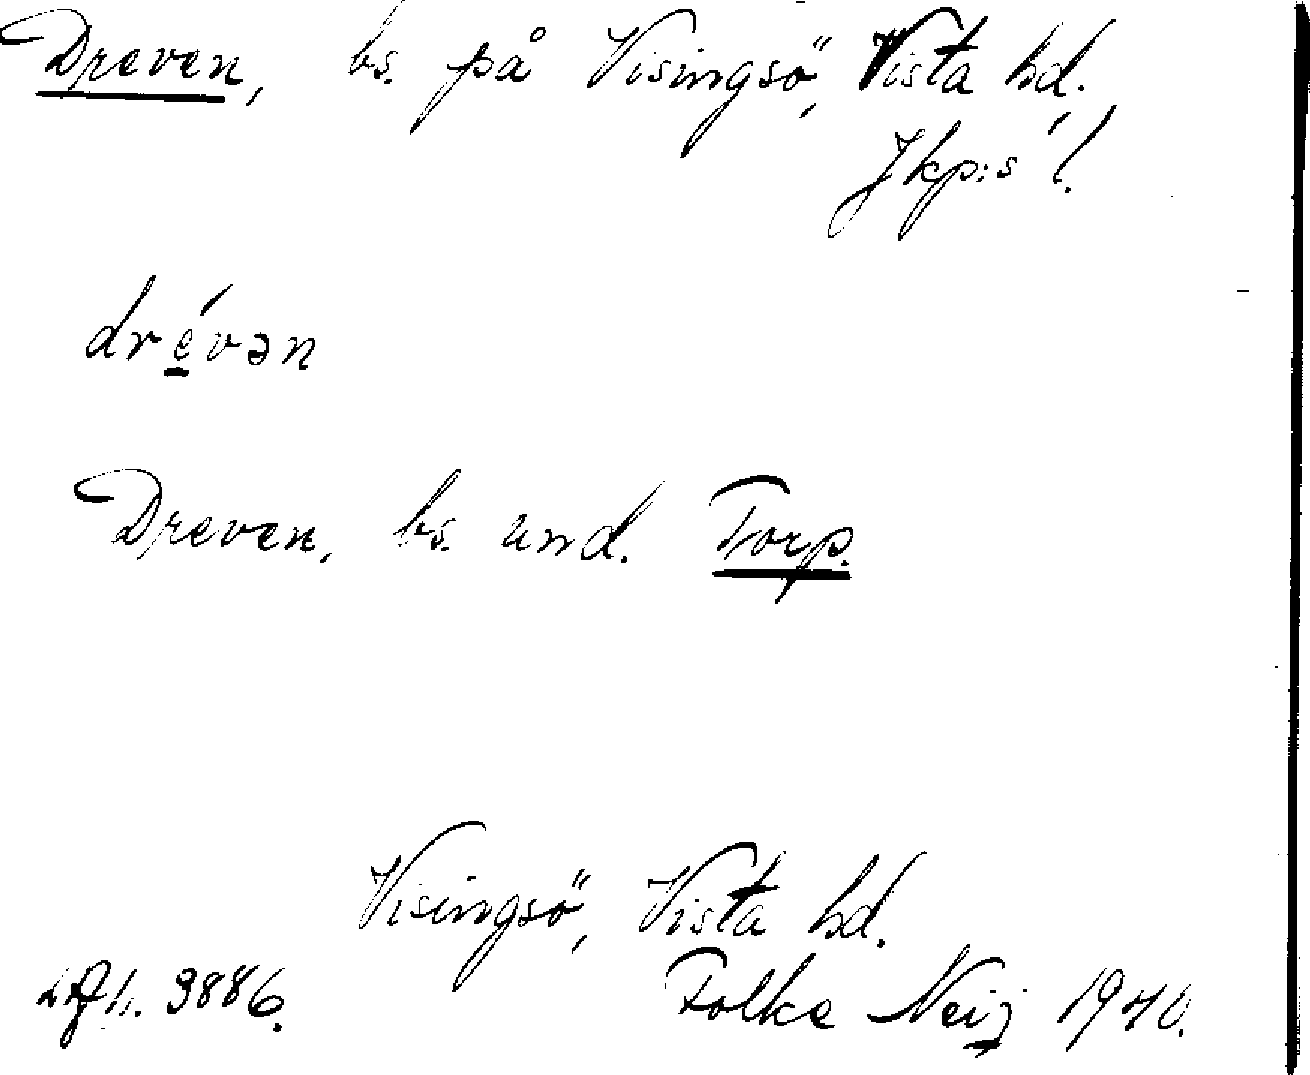 Dreven, bs. på Visingsö, Vista hd.
Jkp:s l.
drévən
Dreven, bs. und. Torp.
Visingsö, Vista hd.
3886.
Folke Neij 1940.